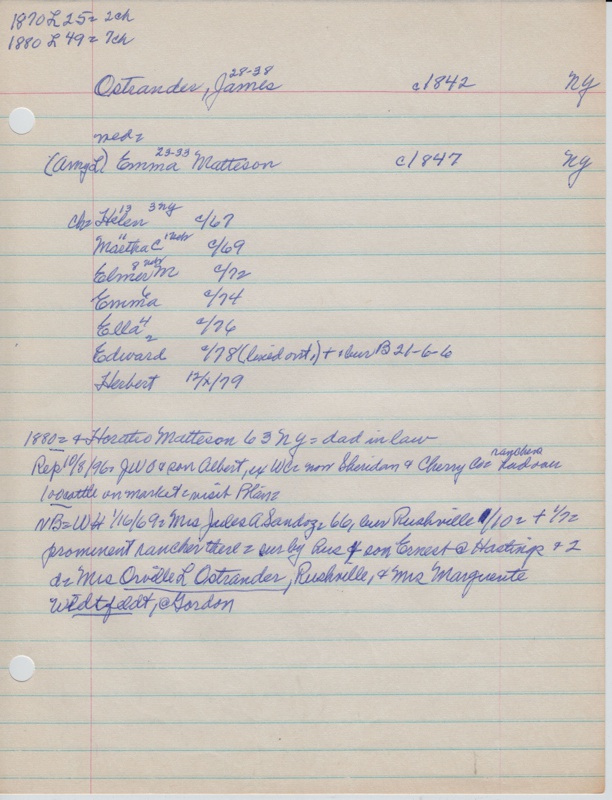 1870 L 25 = 2ch
1880 L 49 = 7ch
28-38
Ostrander, James c1842 NY
med =
23-33
(Amy L) Emma Matteson c1847 NY
13 3NY
ch = Helen c/67
11
Martha C c/69
8
Elmer M c/72
6
Emma c/74
4
Ella c/76
2
Edward c/78 (lived ont.) + bur B 21-6-6
Herbert 12/x/79
1880 = & Horatio Matteson 63 NY = dad in law
ranchers
Rep 10/8/96 = JWO & son Albert, ex WCr now Sheridan & Cherry Co =
100 cattle on market & visit
NB = WH 1/16/69 = Mrs Jules A Sandoz = 66, bur Rushville 1/10 = + 1/7 =
prominent rancher there = sur by hus & son Ernest @ Hastings & 2
d = Mrs Orville L Ostrander, Rushville, & Mrs Marguerite
@ Gordon